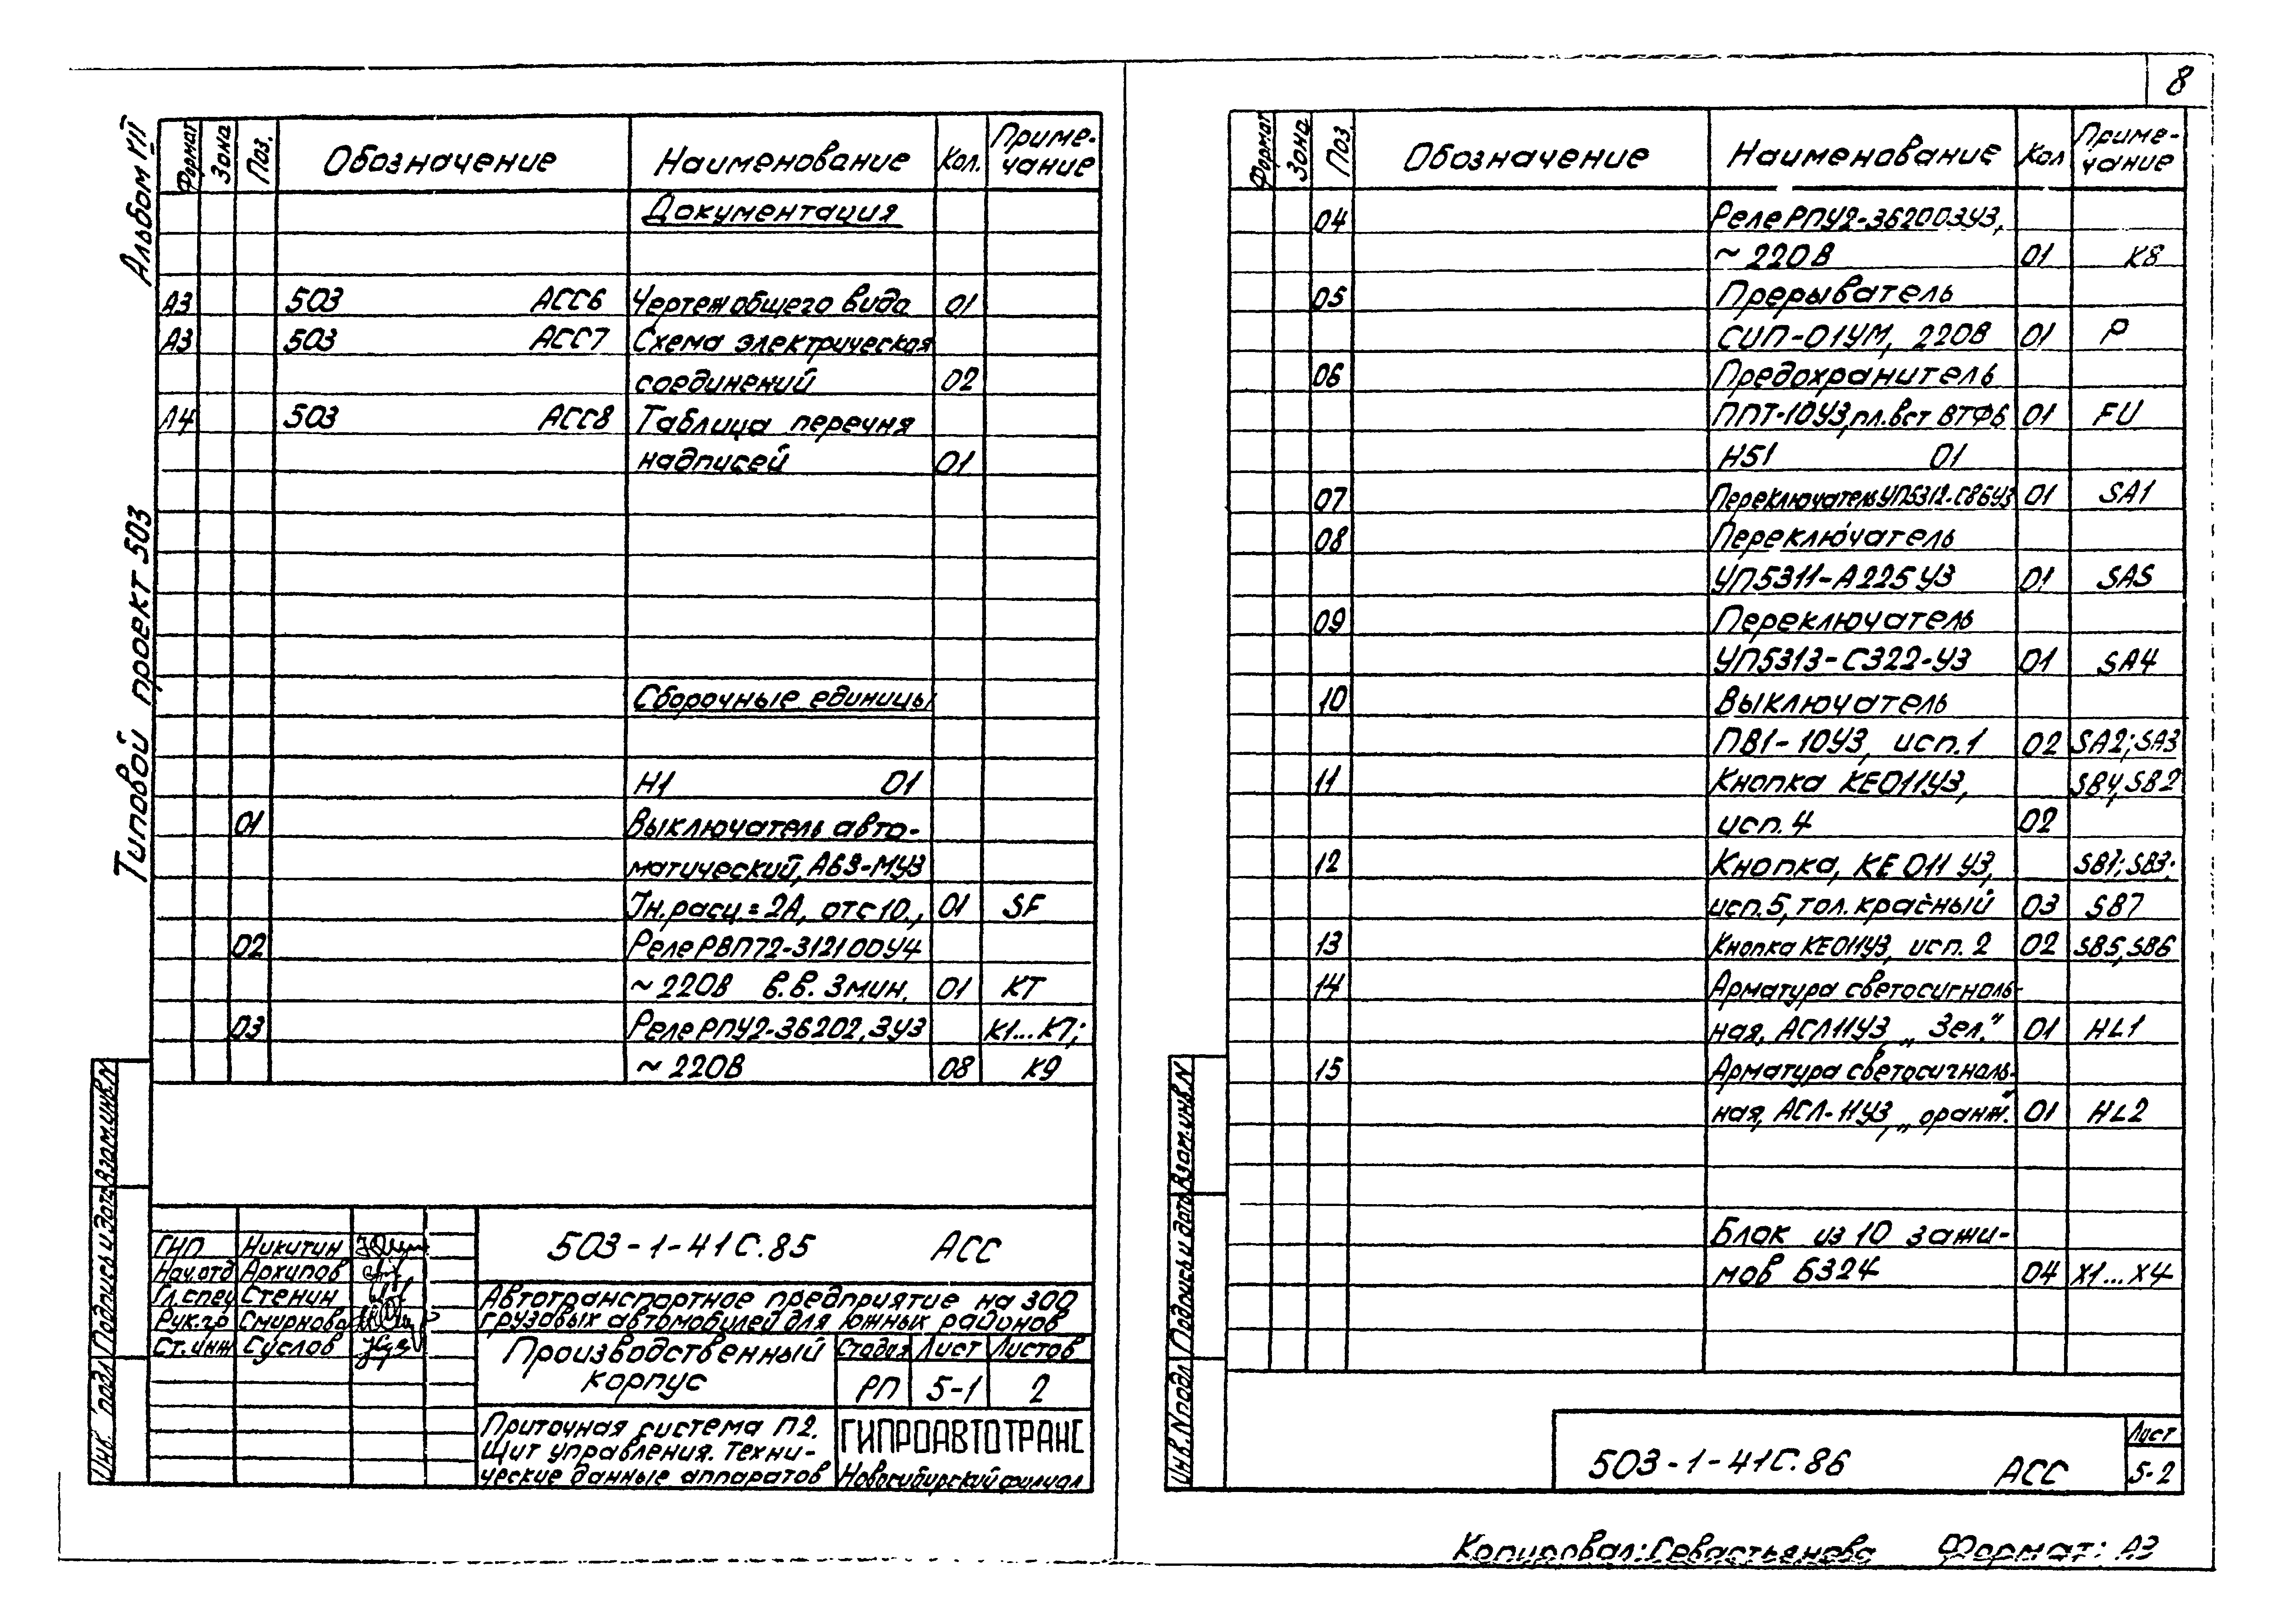 8
Альбом VII
Типовой проект 503
Формат Зона Поз. Обозначение Наименование Кол. Приме-
чание
Документация
А3 503 АСС6 Чертеж общего вида 01
А3 503 АСС7 Схема электрическая
соединений 02
А4 503 АСС8 Таблица перечня
надписей 01
Сборочные единицы
Н1 01
01 Выключатель авто-
матический, А63-МУ3
Iн.расц.=2А, отс10., 01 SF
02 Реле РВП72-3121 00У4
~220В в.в. 3мин. 01 КТ
03 Реле РПУ2-36202.3У3 К1...К7;
~220В 08 К9
ГИП Никитин
Нач.отд Архипов
Гл.спец Стенин
Рук.гр Смирнова
Ст.инж Суслов
503-1-41С.85 АСС
Автотранспортное предприятие на 300
грузовых автомобилей для южных районов
Производственный
корпус
Стадия Лист Листов
РП 5-1 2
Приточная система П2.
Щит управления. Техни-
ческие данные аппаратов
ГИПРОАВТОТРАНС
Новосибирский филиал
Взам.инв.N
Подпись и дата
Инв. подл
Формат Зона Поз. Обозначение Наименование Кол Приме-
чание
04 Реле РПУ2-362003У3,
~220В 01 К8
05 Прерыватель
СИП-01УМ, 220В 01 Р
06 Предохранитель
ППТ-10У3,пл.вст ВТФ6 01 FU
Н51 01
07 Переключатель УП5312-С86У3 01 SA1
08 Переключатель
УП5311-А225У3 01 SA5
09 Переключатель
УП5313-С322-У3 01 SA4
10 Выключатель
ПВ1-10У3, исп.1 02 SA2;SA3
11 Кнопка КЕ011У3, SB4,SB2
исп.4 02
12 Кнопка, КЕ 011 У3, SB1;SB3;
исп.5, тол.красный 03 SB7
13 Кнопка КЕ011У3, исп. 2 02 SB5,SB6
14 Арматура светосигналь-
ная, АСЛ11У3 „Зел." 01 HL1
15 Арматура светосигналь-
ная, АСЛ-11У3, „оранж." 01 HL2
Блок из 10 зажи-
мов Б324 04 Х1...Х4
Взам.инв.N
Подпись и дата
Инв.Nподл
503-1-41С.86 АСС
Лист
5-2
Копировал: Севастьянова Формат: А3